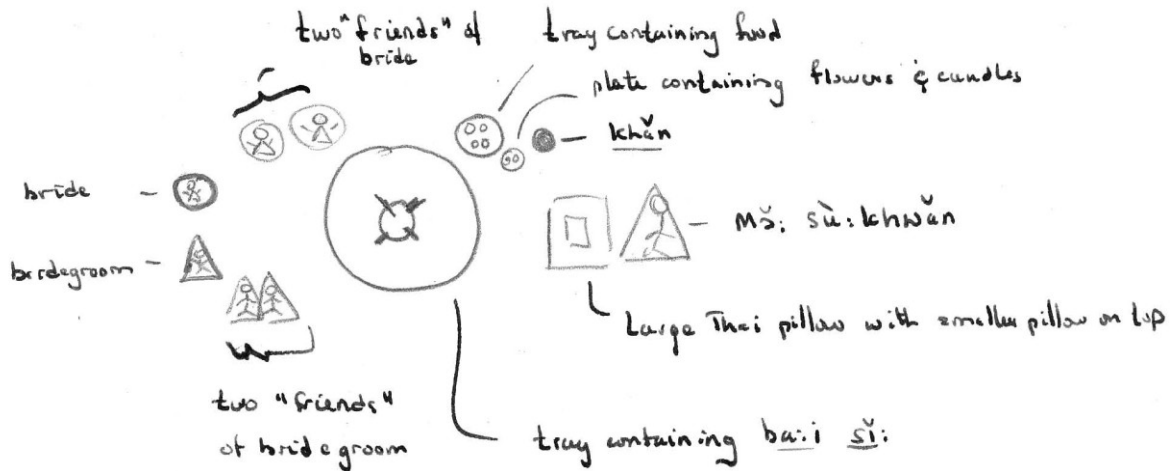 two "friends" of
bride
tray containing food
plate containing flowers & candles
khǎn
bride
Mɔ̌: sù: khwǎn
birdegroom
Large Thai pillow with smaller pillow on top
two "friends"
of bridegroom
tray containing ba:i sǐ: